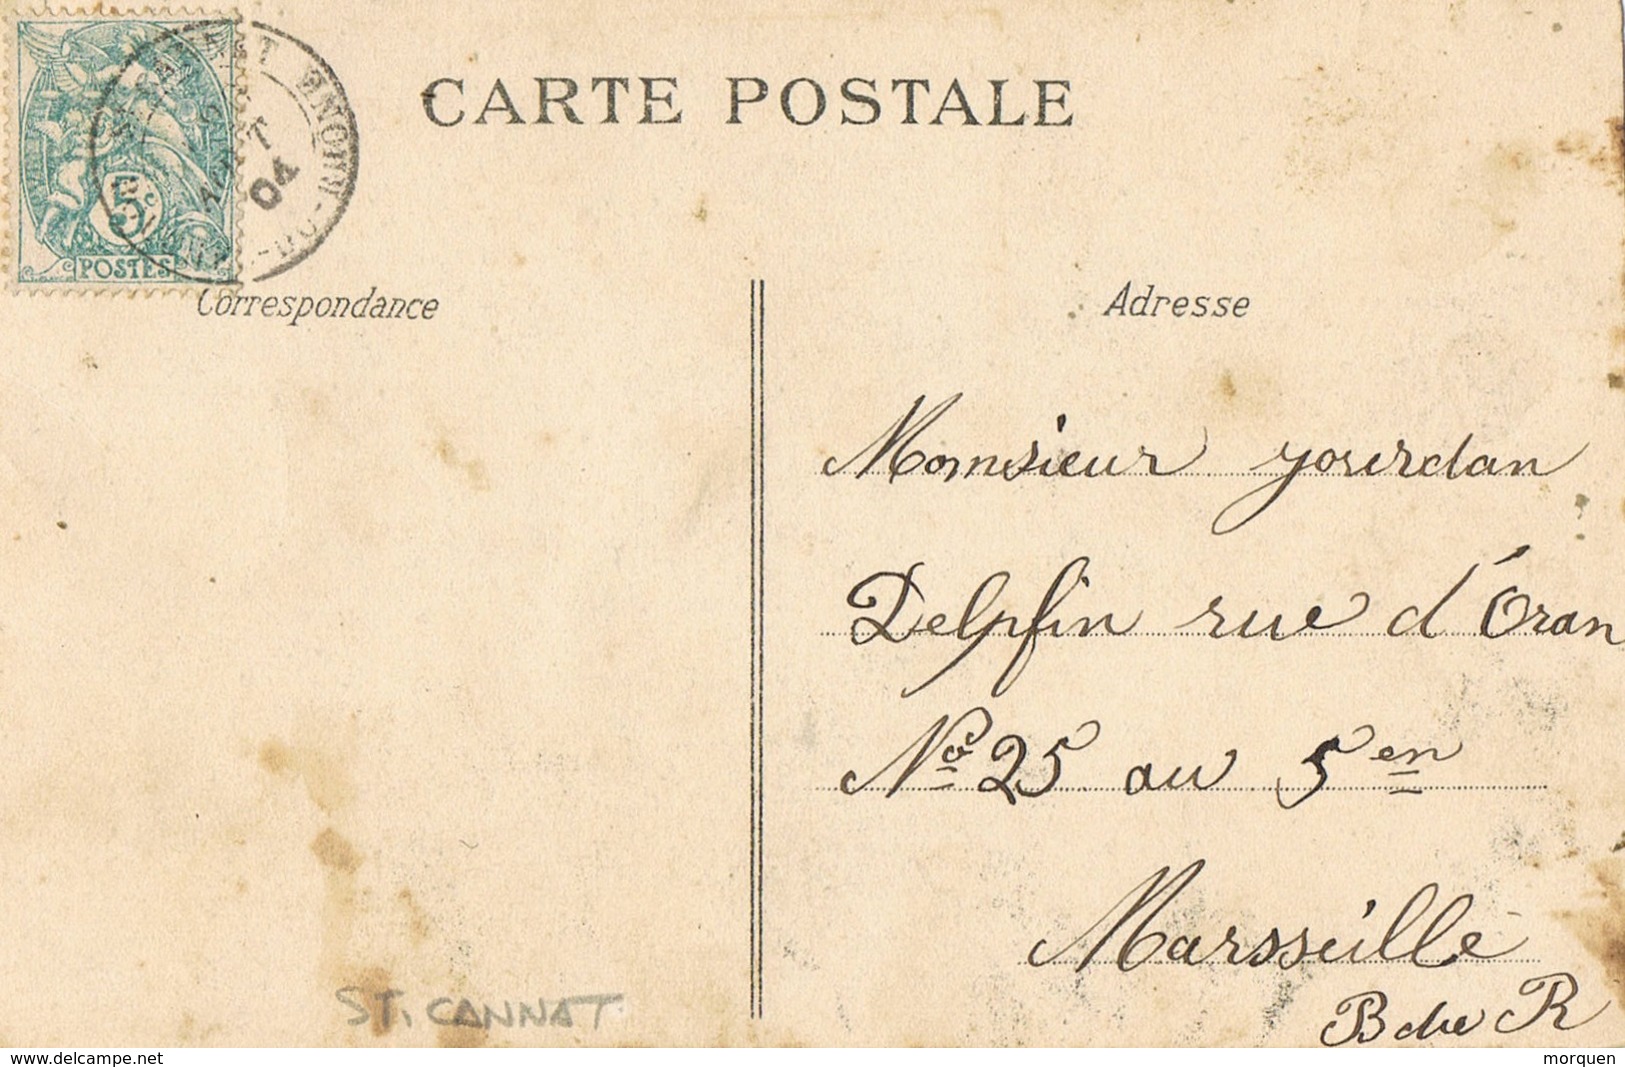 CARTE POSTALE
5c
POSTES
AOUT
04
Correspondance
Adresse
Monsieur yourdan
Delpfin rue d'Oran
No 25 au 5en
Marsseille
B du R
ST. CANNAT
www.delcampe.net
morquen